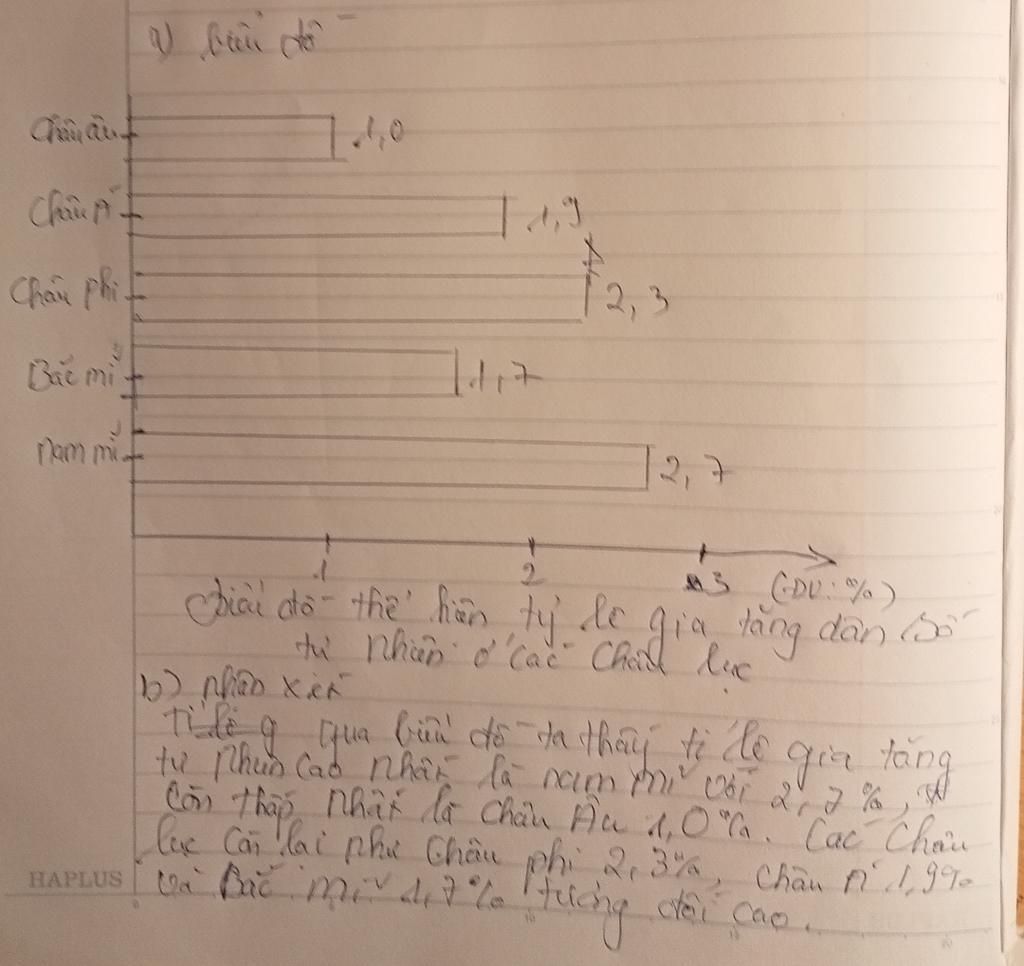 a) biểu đồ
Châu âu 1,0
Châu Á 1,9
Châu phi 2,3
Bắc mĩ 1,7
nam mĩ 2,7
1 2 3 (ĐV: %)
Biểu đồ thể hiện tỷ lệ gia tăng dân số
tự nhiên ở các Châu lục
b) nhận xét
Tỉ lệ g qua biểu đồ ta thấy tỉ lệ gia tăng
tự nhiên cao nhất là nam mĩ với 2,7%,
Còn thấp nhất là Châu Âu 1,0%. Các Châu
lục còn lại như Châu phi 2,3%, Châu Á 1,9%
và Bắc mĩ 1,7% tương đối cao.
HAPLUS